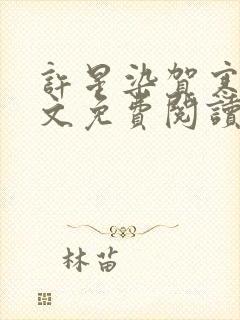 許星染賀寒
文免費閱讀
林苗